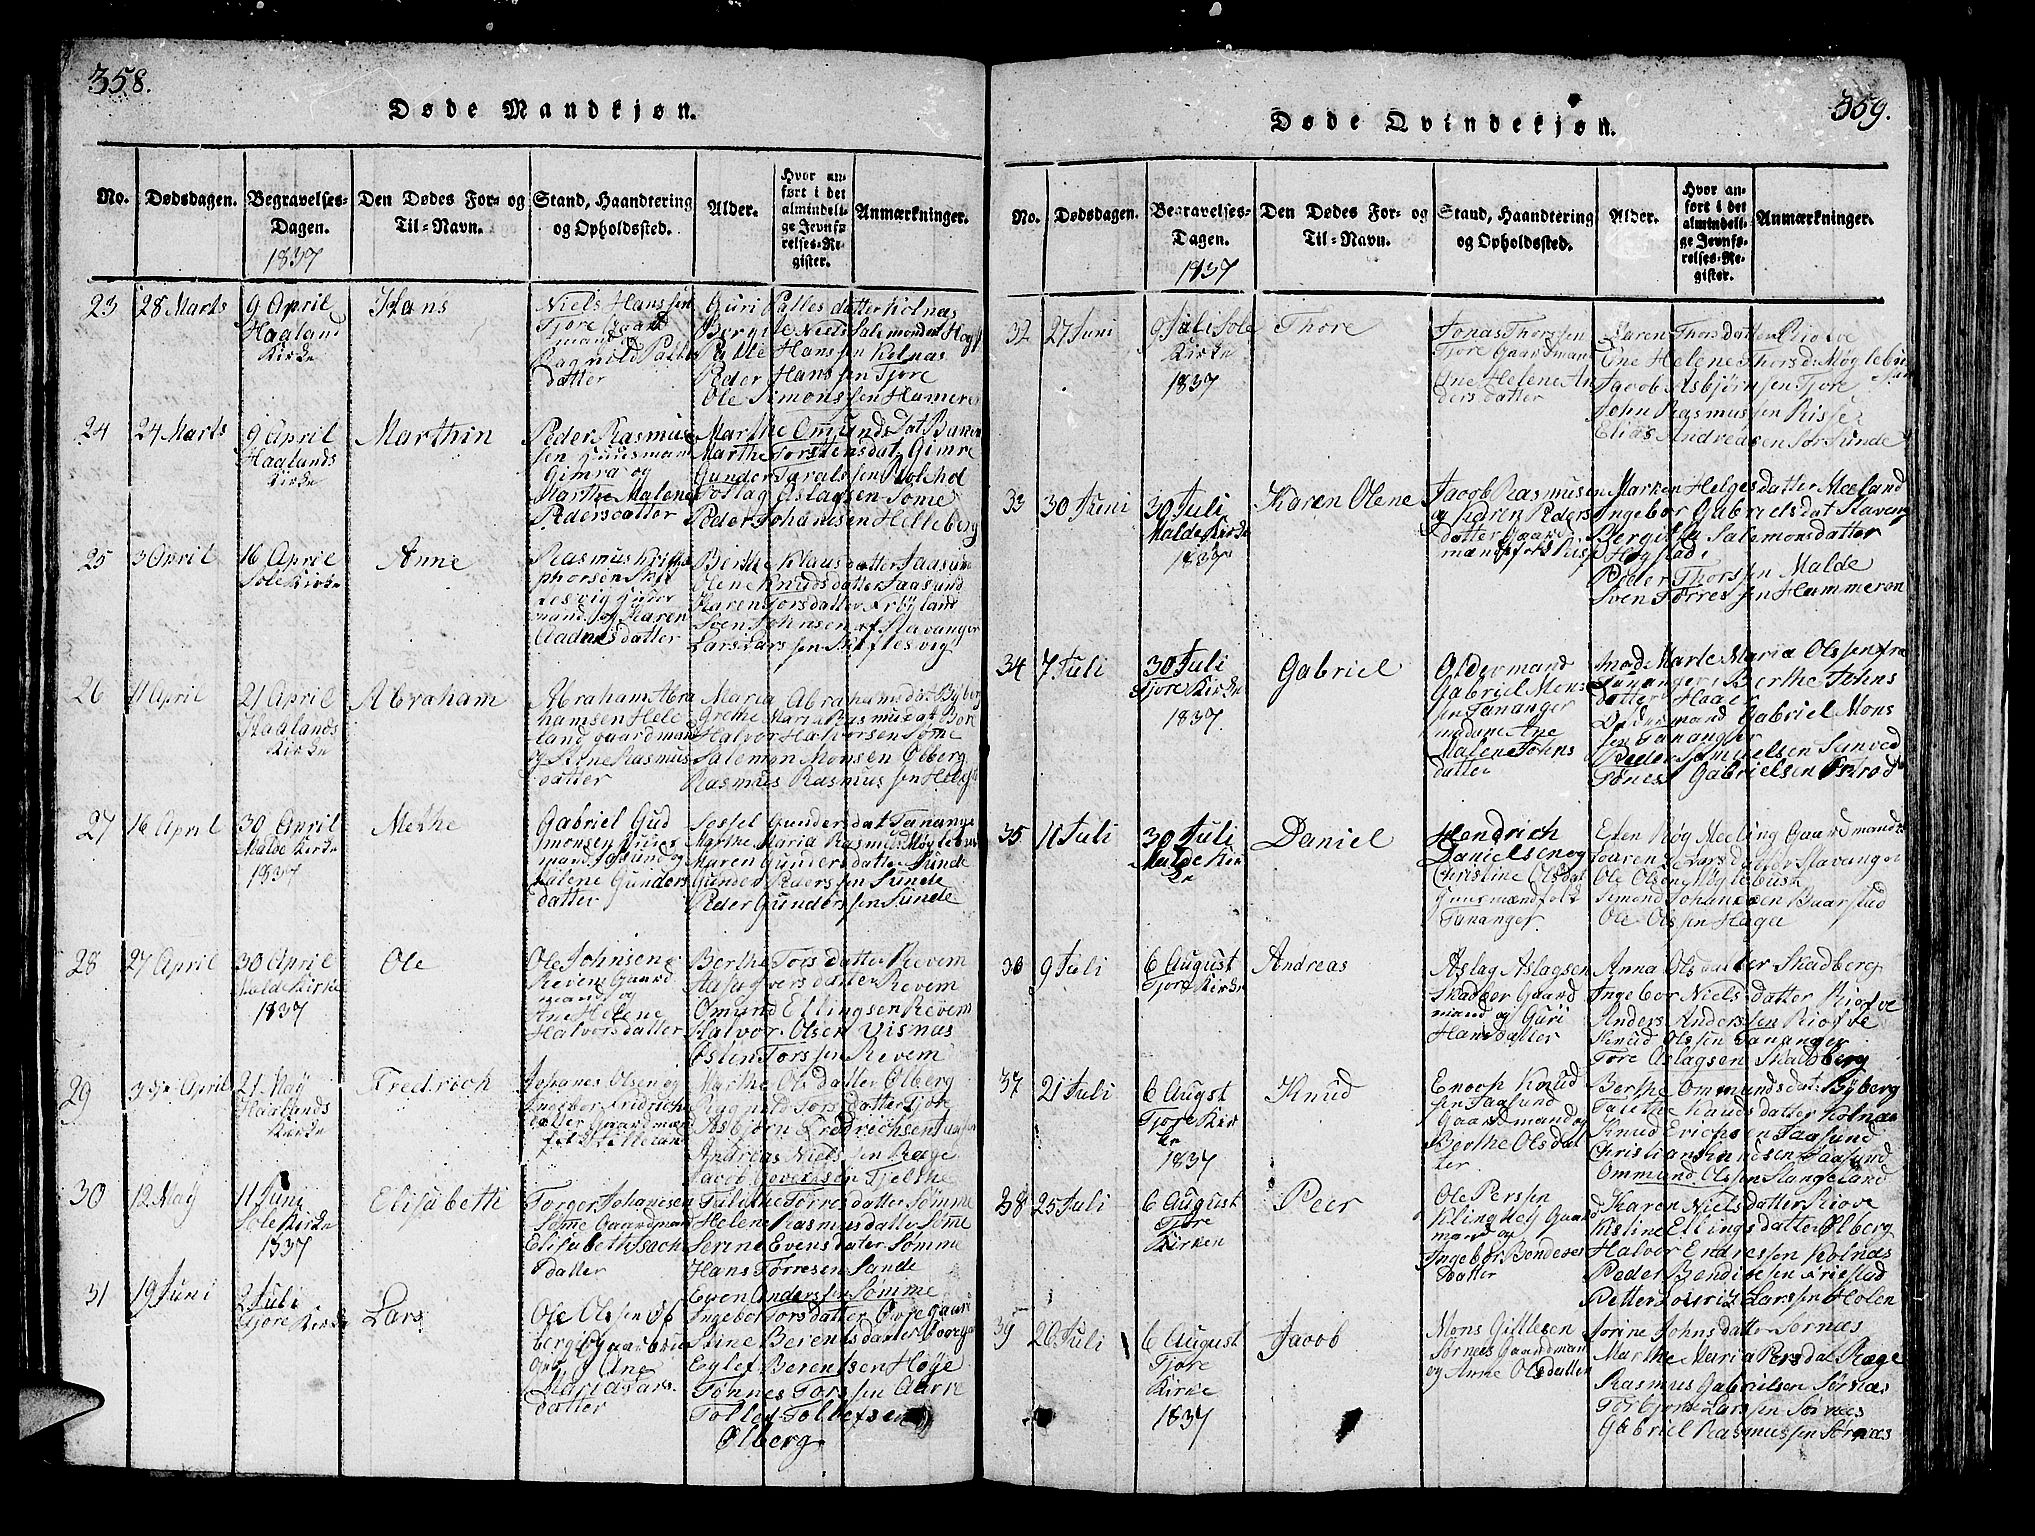 358.
Døde Mandkjøn.
No.
Dødsdagen.
Begravelses-
Dagen.
1837
Den Dødes For- og
Til-Navn.
Stand, Haandtering
og Opholdssted.
Alder.
Hvor an-
ført i det
almindeli-
ge Jevnfø-
relses-Re-
gister.
Anmærkninger.
23
28 Marts
9 April
Haaland
Kirke
Hans
Niels Hanssen
Tjore Gaard
mand og
Ragnild Palles
datter
Guri Palles datter Kolnæs
Palle Hanssen Kolnæs
Peder Hanssen Tjore
Ole Simonssen Hamere
24
24 Marts
9 April
Haalands
Kirke
Marthin
Peder Rasmus
sen Huusmand
Gimra og
Marthe Malene
Pedersdatter
Marthe Omunds Dat
Marthe Torstensdat Gimre
Gunder Taralssen
Aslagsen Sømme
Peder Johannsen Helleberg
25
3 April
16 April
Sole Kirke
Anne
Rasmus Kristo
phorsen Skif
tesvig
mand og Karen
Aadnesdatter
Berthe Klausdatter Jaasund
Olene Knudsdatter Jaasund
Karen Torsdatter Frøyland
Sven Johnsen af Stavanger
Lars Larssen Skiftesvig
26
11 April
21 April
Haalands
Kirke
Abraham
Abraham Abra
hamsen Hele
land gaardmand
og Stine Rasmus
datter
Maria Abrahamsdat Byberg
Grethe Maria Rasmusdat
Halvor Halvorsen Sømme
Salemon Monsen Ølberg
Rasmus Rasmussen
27
16 April
30 April
Malde Kirke
1837
Methe
Gabriel Gud
monsen Huus
mand Jasund og
Malene Gunders
datter
Sessel Gundersdat Tanange
Marthe Maria Rasmusd Møglebust
Maren Gundersdatter Sunde
Gunder Pederssen Sunde
Peder Gunderssen Sunde
28
27 April
30 April
Malde Kirke
1837
Ole
Ole Johnsen
Revem Gaard
mand og
Ane Helene
Halvorsdatter
Berthe Torsdatter Revem
Aasa Iversdatter Revem
Omund Ellingsen Revem
Halvor Olsen Visnæs
Østen Torssen Revem
29
April
21 Maÿ
Haalands
Kirke
Fredrich
Johanes Olsen og
Ingebor Fridrich
datter Gaardmæ
Marthe Olsdatter Ølberg
Ragnild Torsdatter Tjore
Asbjørn Fredrichsen
Andreas Nielssen Ræge
Jacob Goversen Tjelthe
30
12 Maÿ
11 Juni
Sole Kirke
1837
Elisabeth
Torger Johanesen
Sømme Gaardmand
Elisabeth Isach
datter
Talethe Torresdatter Sømme
Helene Rasmusdatter Sømme
Serine Evensdatter Sømme
Hans Torresen Sande
Even Anderssen Sømme
31
19 Juni
2 Juli
Tjore Kirke
Lars
Ole Olssen Øl
berg Gaardbru
ger og Ane
Maria Lars
datter
Ingebor Torsdatter
Stine Berentsdatter
Eglef Berentsen Høje
Tønnes Torssen Aarre
Tollef Tollefsen
Ølberg
359.
Døde Qvindekjøn.
No.
Dødsdagen.
Begravelses-
Dagen.
1837
Den Dødes For- og
Til-Navn.
Stand, Haandtering
og Opholdssted.
Alder.
Hvor an-
ført i det
almindeli-
ge Jevnfø-
relses-Re-
gister.
Anmærkninger.
32
27 Juni
9 Juli Sole
Kirke
1837
Thore
Jonas Thorssen
Tjore Gaardman
Ane Helene An
dersdatter
Karen Thorsdatter Riofve
Ane Helene Thorsd Møglebu
Jacob Asbjørnsen Tjore
John Rasmussen
Elias Andreasen Sør Sunde
33
30 Juni
30 Juli
Malde Kirke
1837
Karen Olene
Jacob Rasmusen
og Karen Peders
datter Gaard
mandsfolk
Marken Helgesdatter Meeland
Ingebor Gabrielsdat Stavang
Bergitha Salemonsdatter
Høgstad
Peder Thorssen Malde
Sven Torressen Hammeren
34
7 Juli
30 Juli
Tjore Kirke
1837
Gabriel
Oldermand
Gabriel Mons
sen Tananger
madam Ane
Malene Johns
datter
Made Marle Maria Olssen fra
Tananger, Berthe Johns
datter Haar
Oldermand Gabriel Mons
sen Tananger
Peder Samuelsen
Tønes Gabrielsen
35
11 Juli
30 Juli
Malde Kir
ke
Daniel
Hendrich
Danielsen og
Christine Olsdat
Huusmændfolk
Tananger
Meeling Gaardmand
Karen Larsdatter Stavanger
Ole Olsen Møglebust
Simond Johannesen Baarstad
Ole Olssen Haga
36
9 Juli
6 August
Tjore Kirke
Andreas
Aslag Aslagsen
Skadber Gaard
mand og Guri
Hansdatter
Anna Olsdatter Skadberg
Ingebor Nielsdatter Riofve
Anders Anderssen Riofve
Knud Olssen Tananger
Tore Aslagsen Skadberg
37
21 Juli
6 Augst
Tjore Kir
ke
1837
Knud
Enoch Knud
sen Jaasund
Gaardmand og
Berthe Olsdat
ter
Berthe Ommundsdat Byberg
Talethe Knudsdatter Kolnæs
Knud Erichsen Jaasund
Christian Knudsen Jaasund
Ommund Olssen Stangeland
38
25 Juli
6 August
Tjore
Kirken
Peer
Ole Perssen
Klinghej Gaar
mand og
Ingebor Bendixes
Datter
Karen Nielsdatter Riove
Kistine Ellingsdatter Ølberg
Halvor Endressen Kolnæs
Peder Bendixsen Friestad
Petter Louritz Larssen Holen
39
20 Juli
6 August
Tjore
Kirke
1837
Jacob
Mons Gitlesen
Sørnes Gaardman
og Anne Olsdatter
Jorine Johnsdatter Sørnæs
Marthe Maria Persdat Ræge
Rasmus Gabrielsen Sørnæs
Torbjørn Larssen Sørnæs
Gabriel Rasmussen Sørnæs